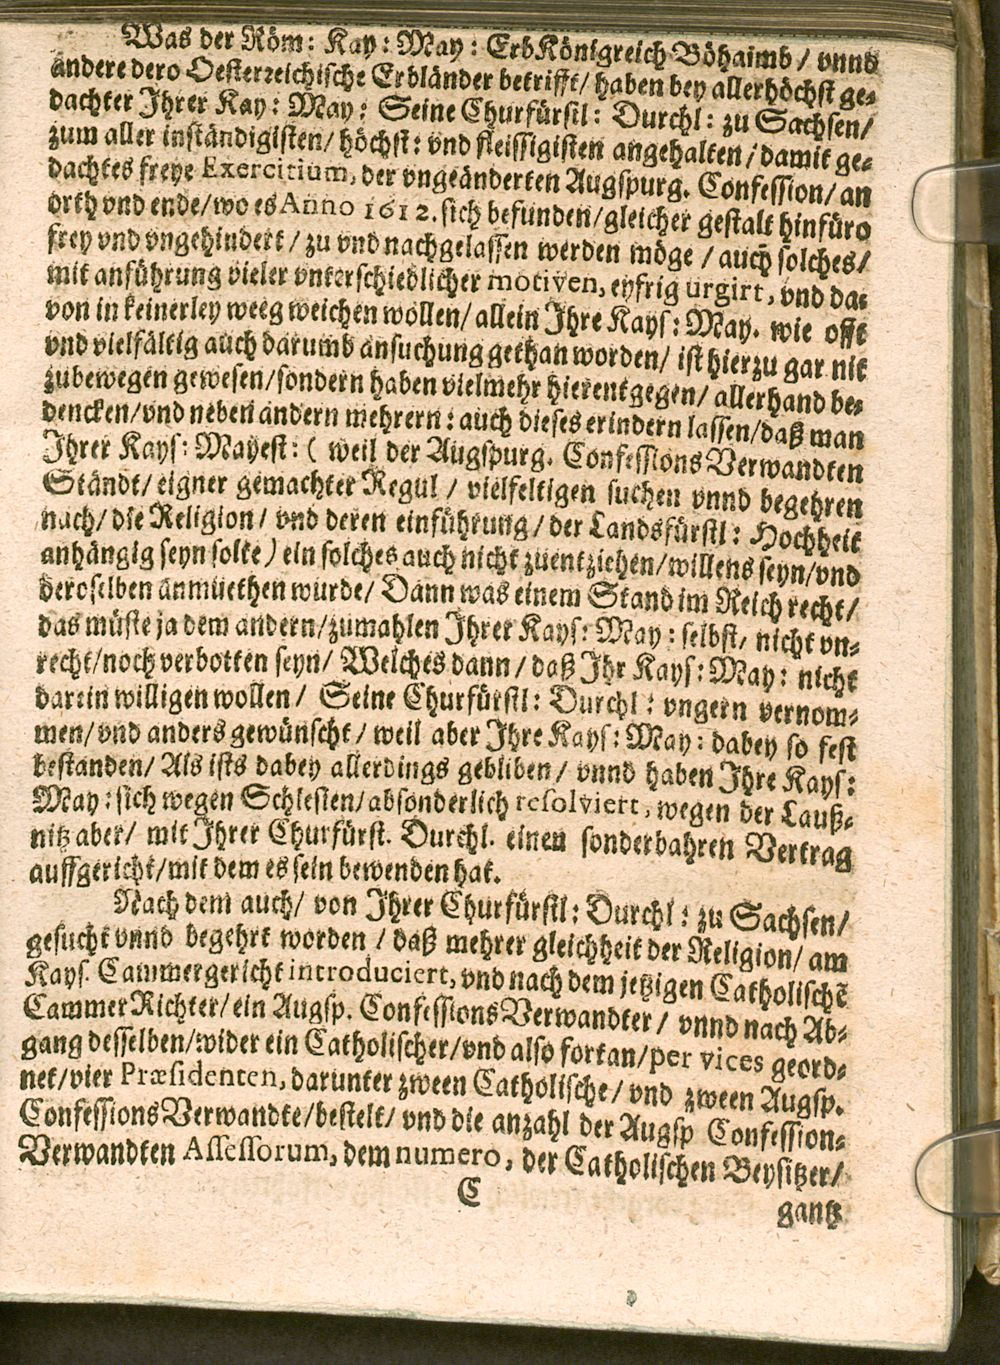 Was der Röm: Kay: May: ErbKönigreich Böhaimb / vnnd
andere dero Oesterreichische Erbländer betrifft / haben bey allerhöchst ge-
dachter Ihrer Kay: May: Seine Churfürstl: Durchl: zu Sachsen /
zum aller inständigisten / höchst: vnd fleissigisten angehalten / damit ge-
dachtes freye Exercitium, der vngeänderten Augspurg. Confession / an
orth vnd ende / wo es Anno 1612. sich befunden / gleicher gestalt hinfüro
frey vnd vngehindert / zu vnd nachgelassen werden möge / auch solches /
mit anführung vieler vnterschiedlicher motiven, eyfrig urgirt, vnd da-
von in keinerley weeg weichen wollen / allein Ihre Kays: May. wie offt
vnd vielfältig auch darumb ansuchung gethan worden / ist hierzu gar nit
zubewegen gewesen / sondern haben vielmehr hierentgegen / allerhand be-
dencken / vnd neben andern mehrern: auch dieses erindern lassen / daß man
Ihrer Kays: Mayest: ( weil der Augspurg. ConfessionsVerwandten
Ständt / eigner gemachter Regul / vielfeltigen suchen vnnd begehren
nach / die Religion / vnd deren einführung / der Landsfürstl: Hochheit
anhängig seyn solte ) ein solches auch nicht zuentziehen / willens seyn / vnd
deroselben anmüethen wurde / Dann was einem Stand im Reich recht /
das müste ja dem andern / zumahlen Ihrer Kays: May: selbst / nicht vn-
recht / noch verbotten seyn / Welches dann / daß Ihr Kays: May: nicht
darein willigen wollen / Seine Churfürstl: Durchl: vngern vernom-
men / vnd anders gewünscht / weil aber Ihre Kays: May: dabey so fest
bestanden / Als ists dabey allerdings gebliben / vnnd haben Ihre Kays:
May: sich wegen Schlesien / absonderlich resolviert, wegen der Lauß-
nitz aber / mit Ihrer Churfürst. Durchl. einen sonderbahren Vertrag
auffgericht / mit dem es sein bewenden hat.
Nach dem auch / von Ihrer Churfürstl: Durchl: zu Sachsen /
gesucht vnnd begehrt worden / daß mehrer gleichheit der Religion / am
Kays. Cammergericht introduciert, vnd nach dem jetzigen Catholischē
CammerRichter / ein Augsp. ConfessionsVerwandter / vnnd nach Ab-
gang desselben / wider ein Catholischer / vnd also fortan / per vices geord-
net / vier Præsidenten, darunter zween Catholische / vnd zween Augsp.
ConfessionsVerwandte / bestelt / vnd die anzahl der Augsp Confession-
Verwandten Assessorum, dem numero, der Catholischen Beysitzer /
C
gantz